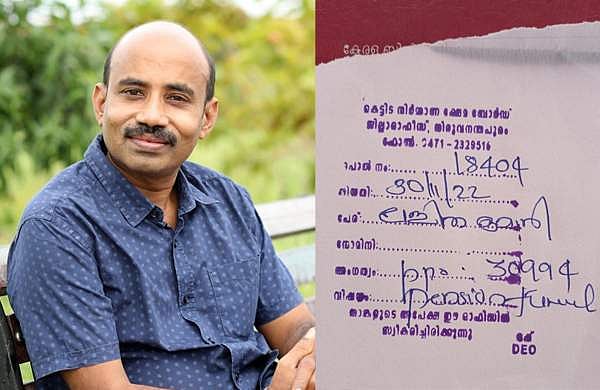 കെട്ടിട നിർമ്മാണ ക്ഷേമ ബോർഡ്
ജില്ലാഓഫീസ്, തിരുവനന്തപുരം
ഫോൺ: 0471 - 2329516
പാൽ നം: 18404
തിയതി: 30/11/22
പേര്:
നോമിനി:
അംഗത്വം: p.no: 30994
വിഷയം:
താങ്കളുടെ അപേക്ഷ ഈ ഓഫീസിൽ
സ്വീകരിച്ചിരിക്കുന്നു
ഒപ്പ്
DEO